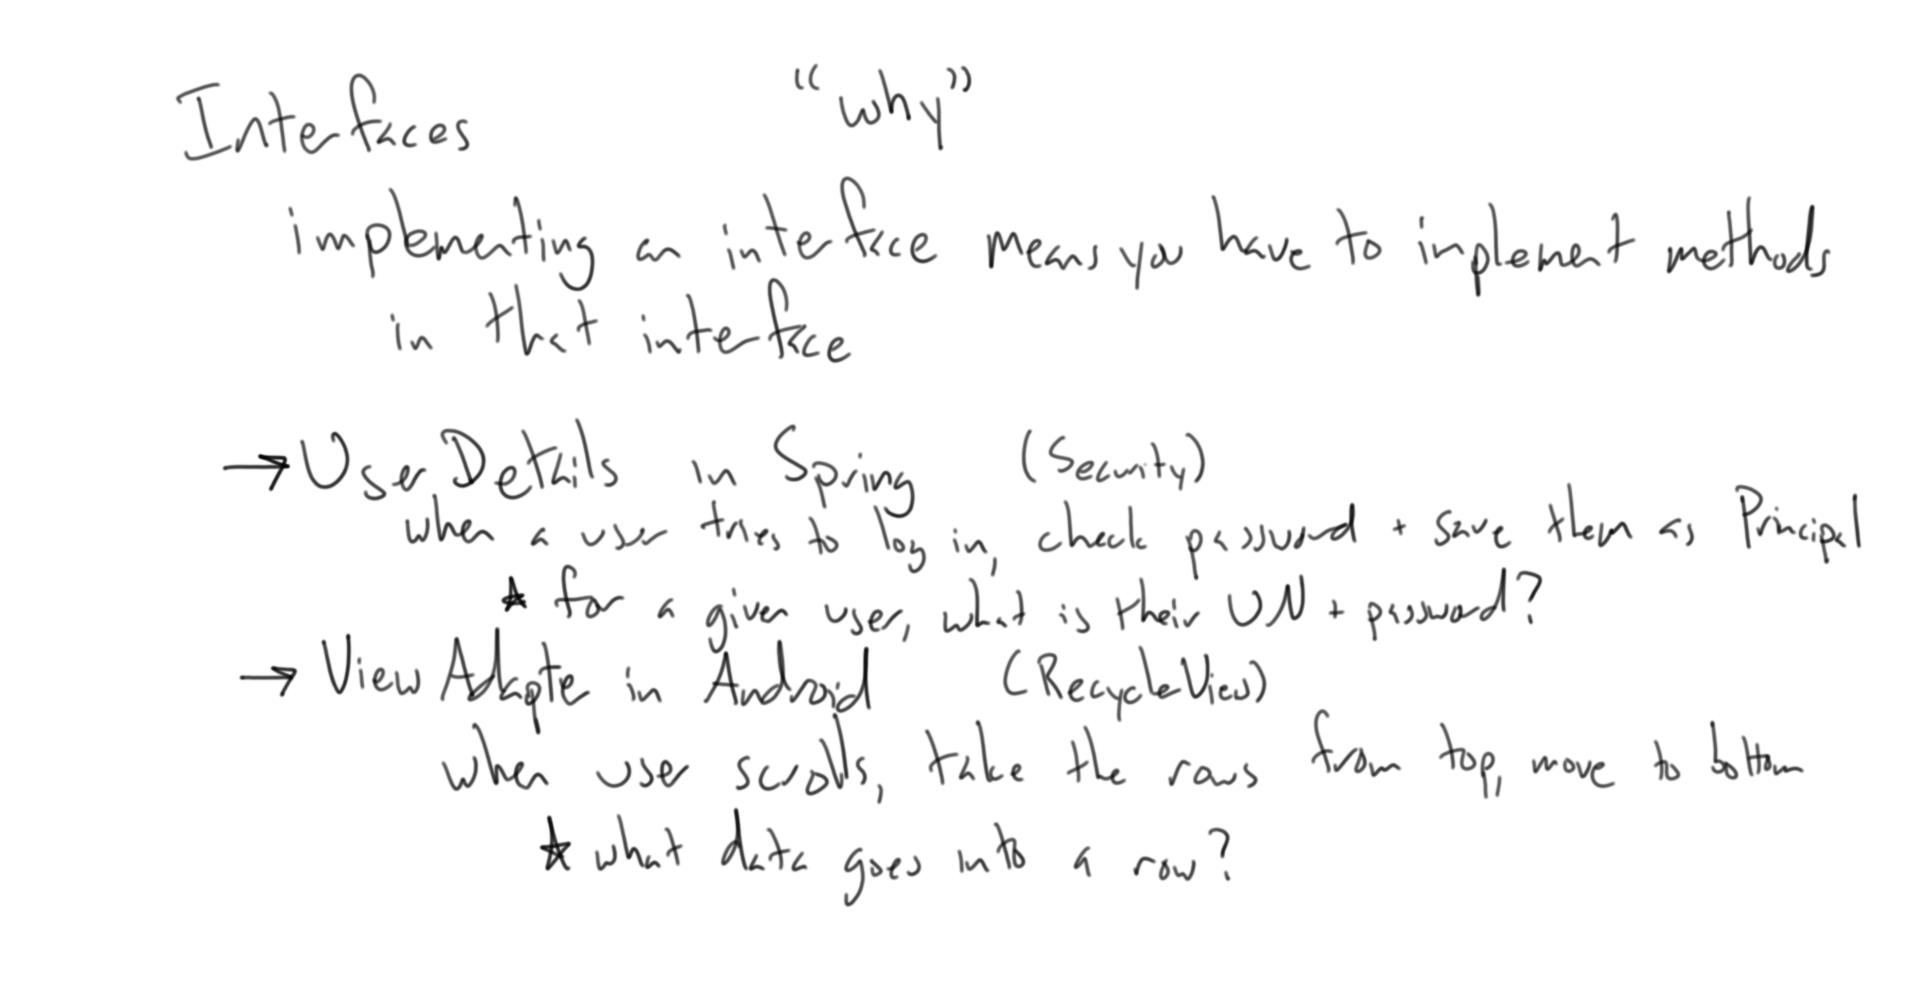 Interfaces "why"
implementing an interface means you have to implement methods
in that interface
→ UserDetails in Spring (Security)
when a user tries to log in, check password + save them as Principal
★ for a given user, what is their UN + password?
→ View Adapter in Android (RecycleView)
when user scrolls, take the rows from top, move to bottom
★ what data goes into a row?